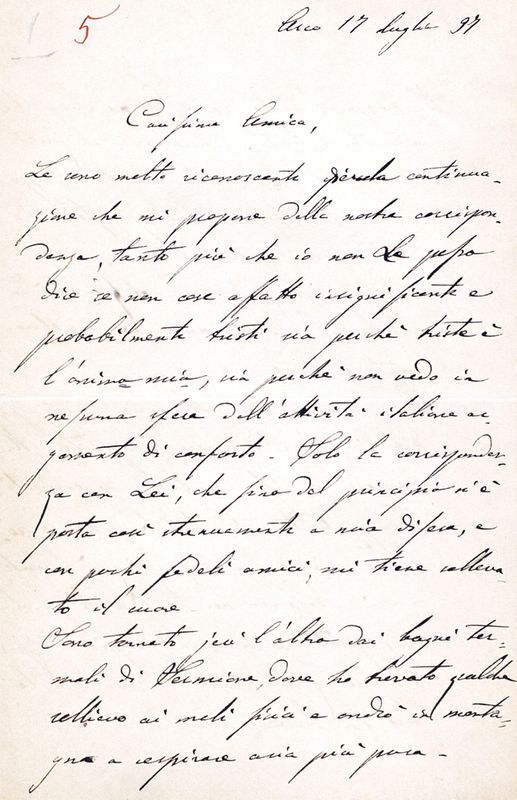 5
Arco 17 luglio 97
Carissima Amica,
Le sono molto riconoscente per la continua-
zione che mi propone della nostra corrispon-
denza, tanto più che io non Le posso
dire se non cose affatto insignificanti e
probabilmente tristi sia perchè triste è
l'anima mia, sia perchè non vedo in
nessuna sfera dell'attività italiana ar-
gomento di conforto. Solo la corrisponden-
za con Lei, che fino dal principio s'è
posta così strenuamente a mia difesa, e
con pochi fedeli amici, mi tiene solleva-
to il cuore.
Sono tornato jeri l'altro dai bagni ter-
mali di Sermione, dove ho trovato qualche
sollievo ai mali fisici e andrò in monta-
gna a respirare aria più pura.